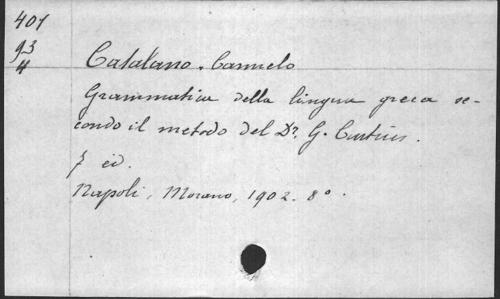 401
93
4
Catalano, Carmelo
Grammatica della lingua greca se-
condo il metodo del Dr. G. Curtius.
7 ed.
Napoli, Morano, 1902. 8°.